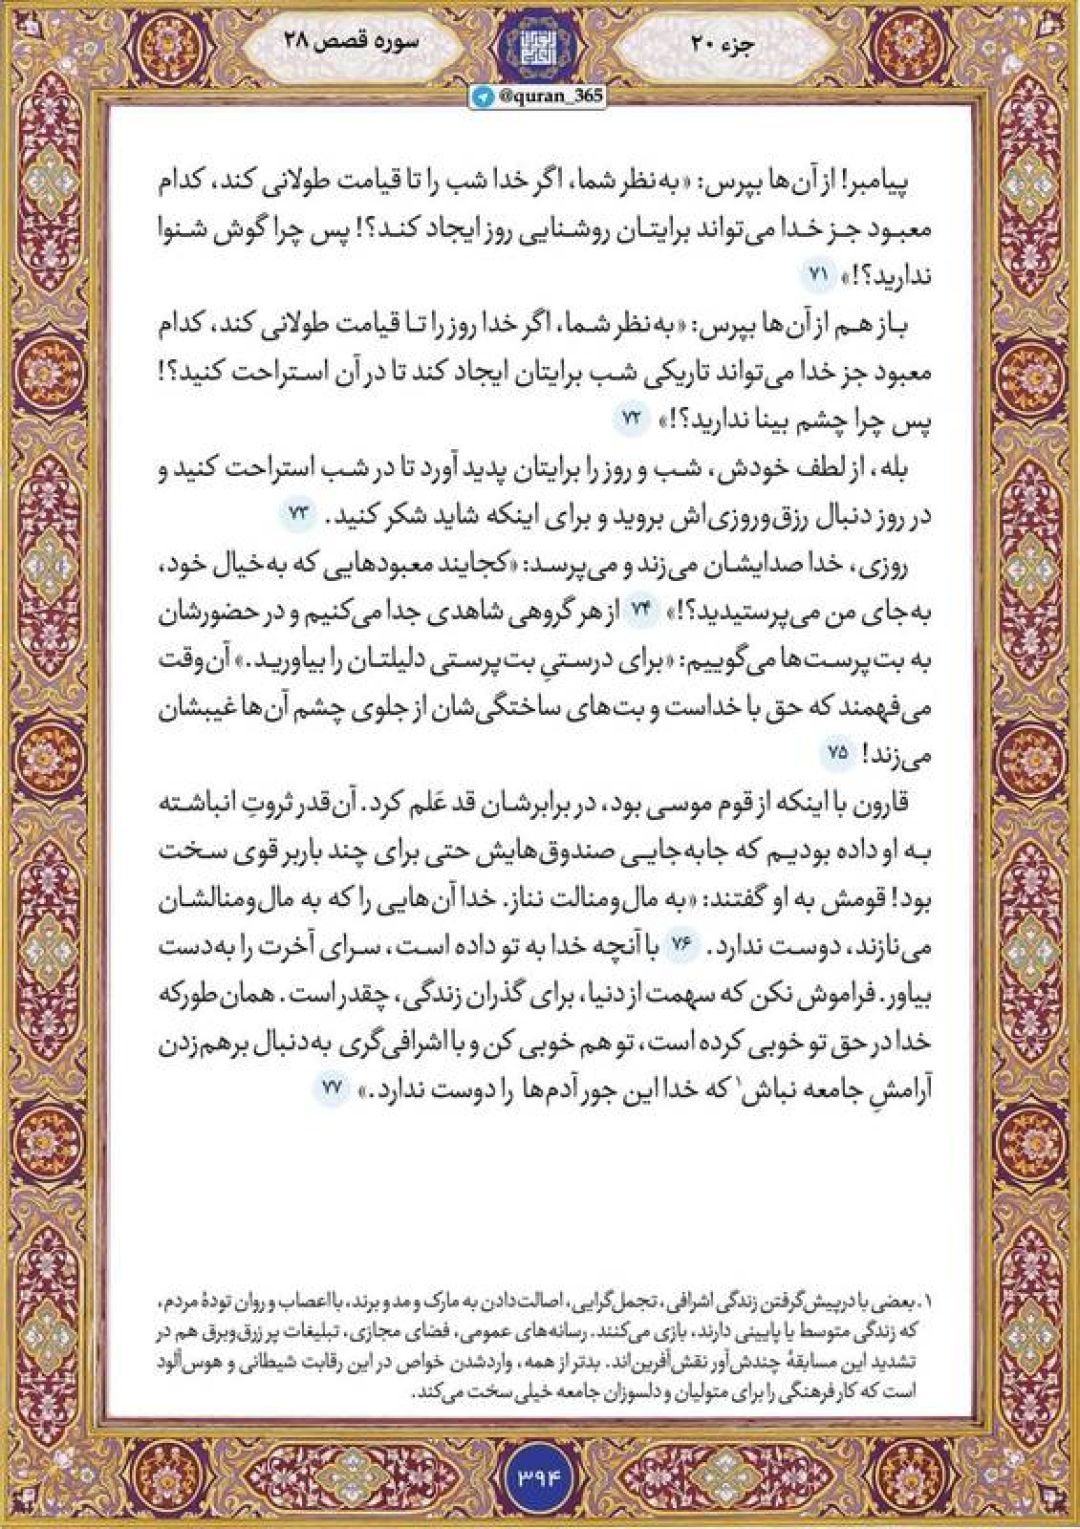 جزء ۲۰
سوره قصص ۲۸
@quran_365
پیامبر! از آن‌ها بپرس: «به‌نظر شما، اگر خدا شب را تا قیامت طولانی کند، کدام
معبود جز خدا می‌تواند برایتان روشنایی روز ایجاد کند؟! پس چرا گوش شنوا
ندارید؟!» ۷۱
باز هم از آن‌ها بپرس: «به‌نظر شما، اگر خدا روز را تا قیامت طولانی کند، کدام
معبود جز خدا می‌تواند تاریکی شب برایتان ایجاد کند تا در آن استراحت کنید؟!
پس چرا چشم بینا ندارید؟!» ۷۲
بله، از لطف خودش، شب و روز را برایتان پدید آورد تا در شب استراحت کنید و
در روز دنبال رزق‌وروزی‌اش بروید و برای اینکه شاید شکر کنید. ۷۳
روزی، خدا صدایشان می‌زند و می‌پرسد: «کجایند معبودهایی که به‌خیال خود،
به‌جای من می‌پرستیدید؟!» ۷۴ از هر گروهی شاهدی جدا می‌کنیم و در حضورشان
به بت‌پرست‌ها می‌گوییم: «برای درستیِ بت‌پرستی دلیلتان را بیاورید.» آن‌وقت
می‌فهمند که حق با خداست و بت‌های ساختگی‌شان از جلوی چشم آن‌ها غیبشان
می‌زند! ۷۵
قارون با اینکه از قوم موسی بود، در برابرشان قد عَلم کرد. آن‌قدر ثروتِ انباشته
به او داده بودیم که جابه‌جایی صندوق‌هایش حتی برای چند باربر قوی سخت
بود! قومش به او گفتند: «به مال‌ومنالت نناز. خدا آن‌هایی را که به مال‌ومنالشان
می‌نازند، دوست ندارد. ۷۶ با آنچه خدا به تو داده است، سرای آخرت را به‌دست
بیاور. فراموش نکن که سهمت از دنیا، برای گذران زندگی، چقدر است. همان‌طورکه
خدا در حق تو خوبی کرده است، تو هم خوبی کن و با اشرافی‌گری به‌دنبال برهم‌زدن
آرامشِ جامعه نباش۱ که خدا این جور آدم‌ها را دوست ندارد.» ۷۷
۱. بعضی با درپیش‌گرفتن زندگی اشرافی، تجمل‌گرایی، اصالت‌دادن به مارک و مد و برند، با اعصاب و روان تودهٔ مردم،
که زندگی متوسط یا پایینی دارند، بازی می‌کنند. رسانه‌های عمومی، فضای مجازی، تبلیغات پر زرق‌وبرق هم در
تشدید این مسابقهٔ چندش‌آور نقش‌آفرین‌اند. بدتر از همه، واردشدن خواص در این رقابت شیطانی و هوس‌آلود
است که کار فرهنگی را برای متولیان و دلسوزان جامعه خیلی سخت می‌کند.
۳۹۴